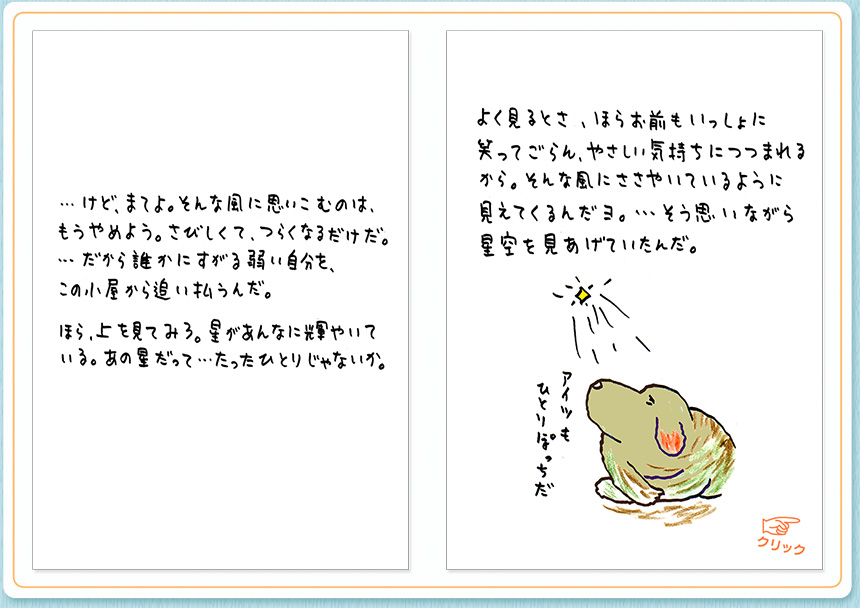 …けど、まてよ。そんな風に思いこむのは、
もうやめよう。さびしくて、つらくなるだけだ。
…だから誰かにすがる弱い自分を、
この小屋から追い払うんだ。
ほら、上を見てみろ。星があんなに輝やいて
いる。あの星だって…たったひとりじゃないか。
よく見るとさ、ほらお前もいっしょに
笑ってごらん、やさしい気持ちにつつまれる
から。そんな風にささやいているように
見えてくるんだヨ。…そう思いながら
星空を見あげていたんだ。
アイツも
ひとりぽっちだ
クリック